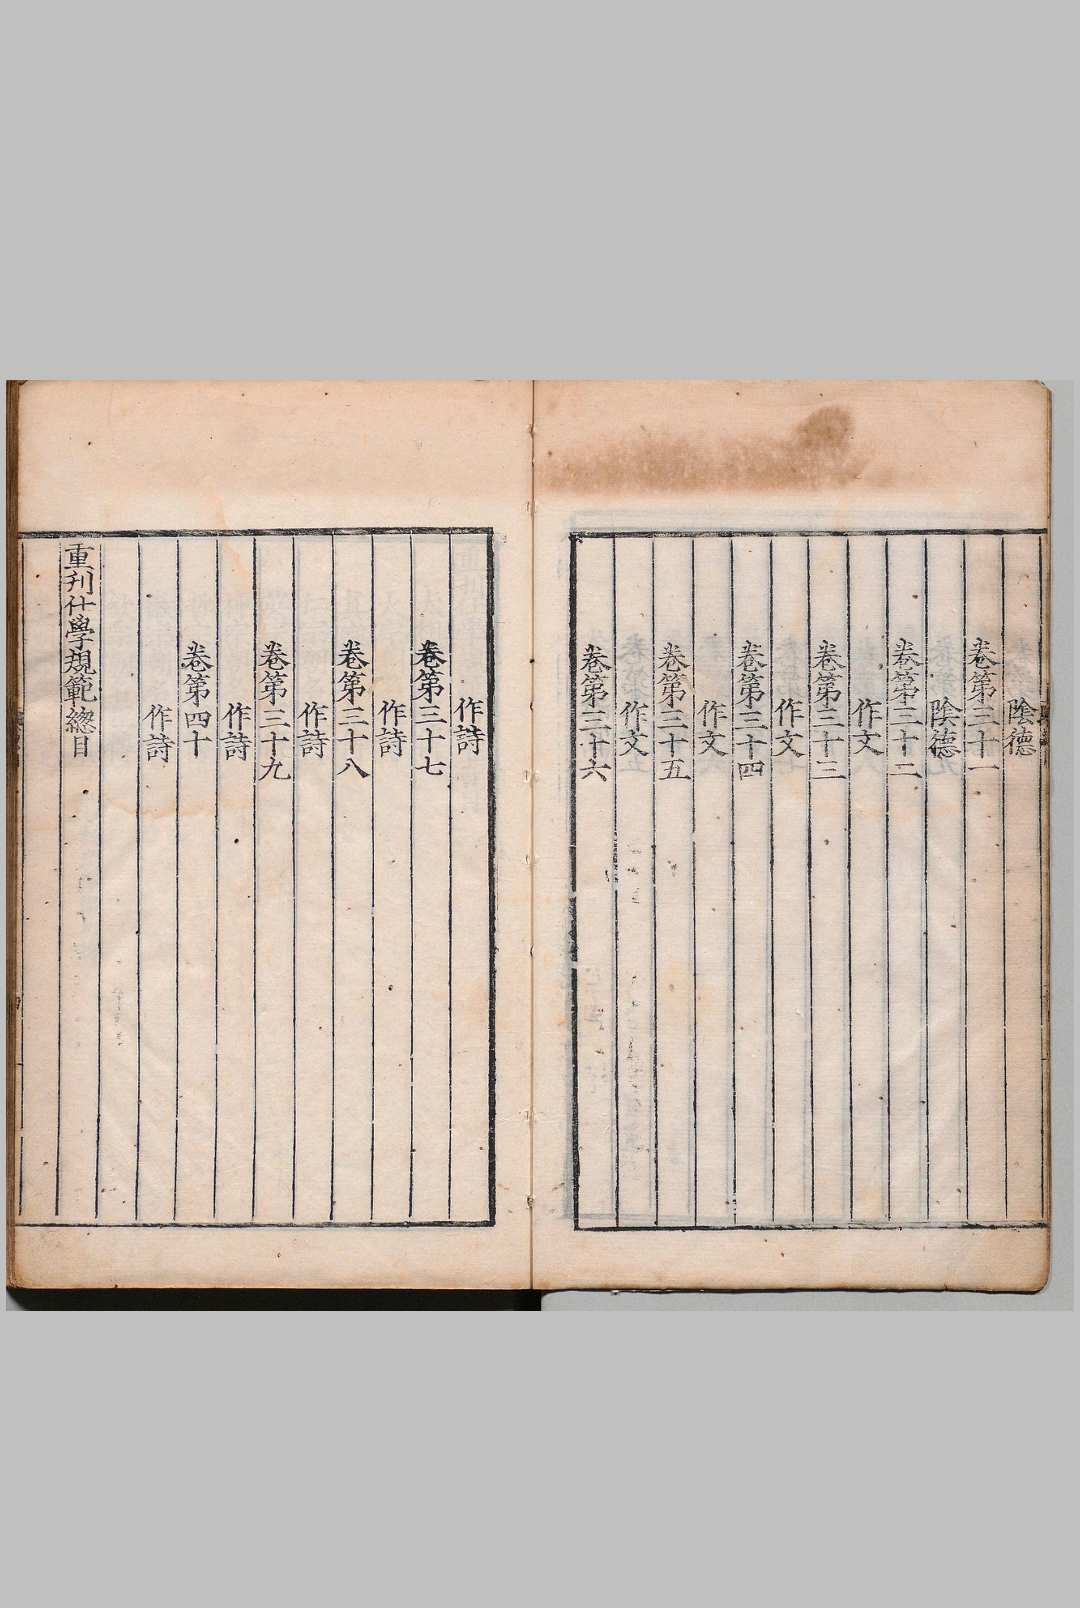 陰德
卷第三十一
陰德
卷第三十二
作文
卷第三十三
作文
卷第三十四
作文
卷第三十五
作文
卷第三十六
作詩
卷第三十七
作詩
卷第三十八
作詩
卷第三十九
作詩
卷第四十
作詩
重刊仕學規範總目